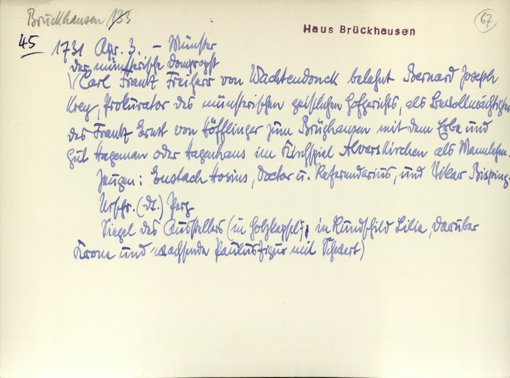 Brückhausen 133
67
Haus Brückhausen
45 1731 Apr. 3. – Münster
Der münsterische Dompropst
Carl Frantz Freiherr von Wachtendonck belehnt Bernard Joseph
Krey, Prokurator des münsterischen geistlichen Hofgerichts, als Bevollmächtigten
des Frantz Ernst von Höfflinger zum Brüghausen mit dem Erbe und
Gut Hageman oder Hagenhaus im Kirchspiel Alverskirchen als Mannlehen.
Zeugen: Eustach Hosius, Doctor u. Referendarius, und Vikar Brisping
Urschr. (dt.) Perg.
Siegel des Ausstellers (in Holzkapsel, in Rundschild Lilie, darüber
Krone und wachsende Paulusfigur mit Schwert)